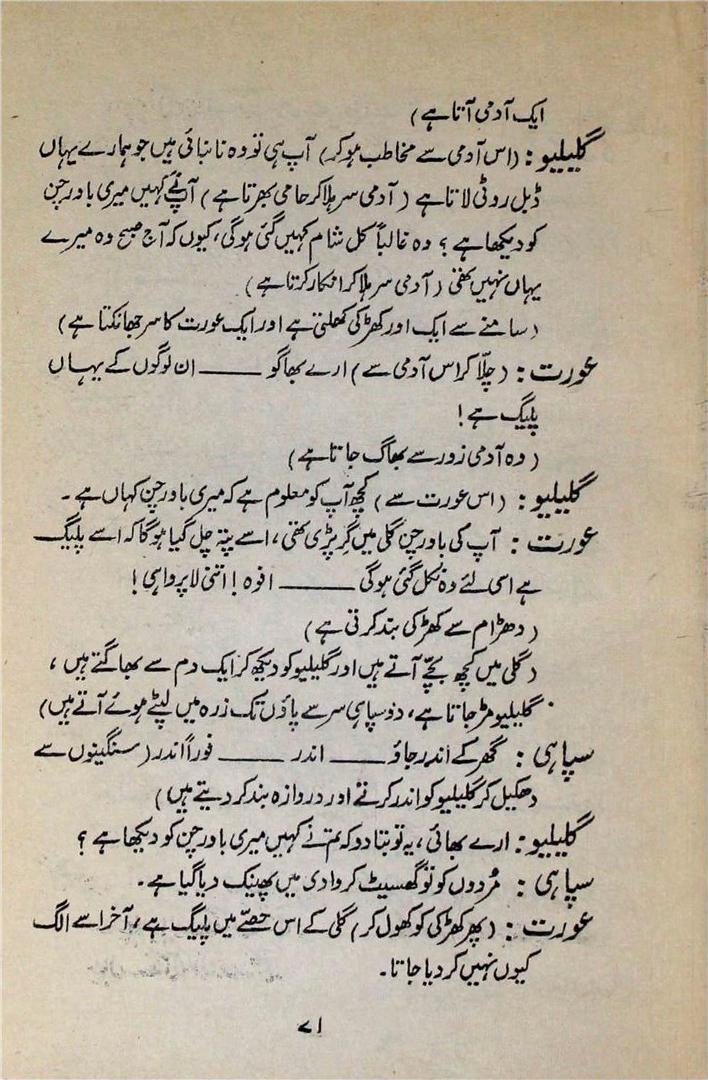 ایک آدمی آتا ہے)
گلیلیو : (اس آدمی سے مخاطب ہو کر) آپ ہی تو وہ نانبائی ہیں جو ہمارے یہاں
ڈبل روٹی لاتا ہے (آدمی سر ہلا کر حامی بھرتا ہے) آپ نے کہیں میری باورچن
کو دیکھا ہے ؟ وہ غالباً کل شام کہیں گئی ہو گی، کیوں کہ آج صبح وہ میرے
یہاں نہیں تھی (آدمی سر ہلا کر انکار کرتا ہے)
(سامنے سے ایک اور کھڑکی کھلتی ہے اور ایک عورت کا سر جھانکتا ہے)
عورت : (چلّا کر اس آدمی سے) ارے بھاگو ——— ان لوگوں کے یہاں
پلیگ ہے !
(وہ آدمی زور سے بھاگ جاتا ہے)
گلیلیو : (اس عورت سے) کچھ آپ کو معلوم ہے کہ میری باورچن کہاں ہے ۔
عورت : آپ کی باورچن گلی میں گر پڑی تھی، اسے پتہ چل گیا ہوگا کہ اسے پلیگ
ہے اسی لئے وہ نکل گئی ہو گی ——— افوہ ! اتنی لا پرواہی !
(دھڑام سے کھڑکی بند کرتی ہے)
(گلی میں کچھ بچّے آتے ہیں اور گلیلیو کو دیکھ کر ایک دم سے بھاگتے ہیں ،
گلیلیو مڑ جاتا ہے، دو سپاہی سر سے پاؤں تک زرہ میں لپٹے ہوئے آتے ہیں)
سپاہی : گھر کے اندر جاؤ ——— اندر ——— فوراً اندر (سنگینوں سے
دھکیل کر گلیلیو کو اندر کرتے اور دروازہ بند کر دیتے ہیں)
گلیلیو : ارے بھائی، یہ تو بتا دو کہ تم نے کہیں میری باورچن کو دیکھا ہے ؟
سپاہی : مُردوں کو تو گھسیٹ کر وادی میں پھینک دیا گیا ہے ۔
عورت : (پھر کھڑکی کو کھول کر) گلی کے اس حصّے میں پلیگ ہے، آخر اسے الگ
کیوں نہیں کر دیا جاتا ۔
۷۱